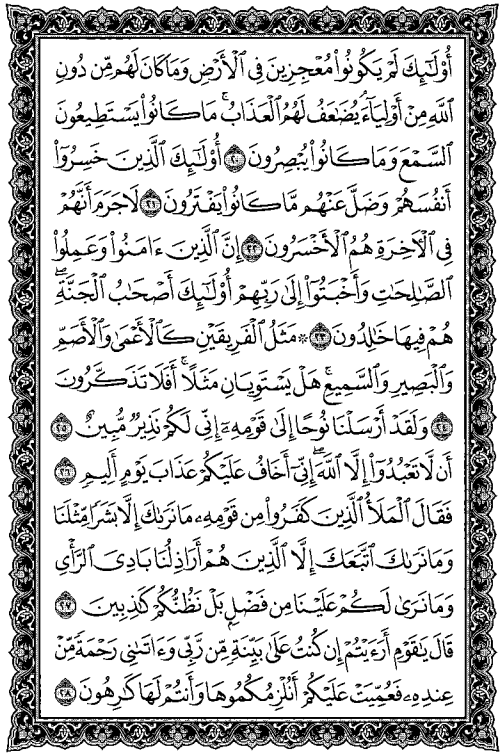 أُوْلَٰٓئِكَ لَمْ يَكُونُوا۟ مُعْجِزِينَ فِى ٱلْأَرْضِ وَمَا كَانَ لَهُم مِّن دُونِ
ٱللَّهِ مِنْ أَوْلِيَآءَ ۘ يُضَٰعَفُ لَهُمُ ٱلْعَذَابُ ۚ مَا كَانُوا۟ يَسْتَطِيعُونَ
ٱلسَّمْعَ وَمَا كَانُوا۟ يُبْصِرُونَ ٢٠ أُوْلَٰٓئِكَ ٱلَّذِينَ خَسِرُوٓا۟
أَنفُسَهُمْ وَضَلَّ عَنْهُم مَّا كَانُوا۟ يَفْتَرُونَ ٢١ لَا جَرَمَ أَنَّهُمْ
فِى ٱلْءَاخِرَةِ هُمُ ٱلْأَخْسَرُونَ ٢٢ إِنَّ ٱلَّذِينَ ءَامَنُوا۟ وَعَمِلُوا۟
ٱلصَّٰلِحَٰتِ وَأَخْبَتُوٓا۟ إِلَىٰ رَبِّهِمْ أُوْلَٰٓئِكَ أَصْحَٰبُ ٱلْجَنَّةِ ۖ
هُمْ فِيهَا خَٰلِدُونَ ٢٣ ۞ مَثَلُ ٱلْفَرِيقَيْنِ كَٱلْأَعْمَىٰ وَٱلْأَصَمِّ
وَٱلْبَصِيرِ وَٱلسَّمِيعِ ۚ هَلْ يَسْتَوِيَانِ مَثَلًا ۚ أَفَلَا تَذَكَّرُونَ
٢٤ وَلَقَدْ أَرْسَلْنَا نُوحًا إِلَىٰ قَوْمِهِۦٓ إِنِّى لَكُمْ نَذِيرٌ مُّبِينٌ ٢٥
أَن لَّا تَعْبُدُوٓا۟ إِلَّا ٱللَّهَ ۖ إِنِّىٓ أَخَافُ عَلَيْكُمْ عَذَابَ يَوْمٍ أَلِيمٍ ٢٦
فَقَالَ ٱلْمَلَأُ ٱلَّذِينَ كَفَرُوا۟ مِن قَوْمِهِۦ مَا نَرَىٰكَ إِلَّا بَشَرًا مِّثْلَنَا
وَمَا نَرَىٰكَ ٱتَّبَعَكَ إِلَّا ٱلَّذِينَ هُمْ أَرَاذِلُنَا بَادِىَ ٱلرَّأْىِ
وَمَا نَرَىٰ لَكُمْ عَلَيْنَا مِن فَضْلٍۭ بَلْ نَظُنُّكُمْ كَٰذِبِينَ ٢٧
قَالَ يَٰقَوْمِ أَرَءَيْتُمْ إِن كُنتُ عَلَىٰ بَيِّنَةٍ مِّن رَّبِّى وَءَاتَىٰنِى رَحْمَةً مِّنْ
عِندِهِۦ فَعُمِّيَتْ عَلَيْكُمْ أَنُلْزِمُكُمُوهَا وَأَنتُمْ لَهَا كَٰرِهُونَ ٢٨